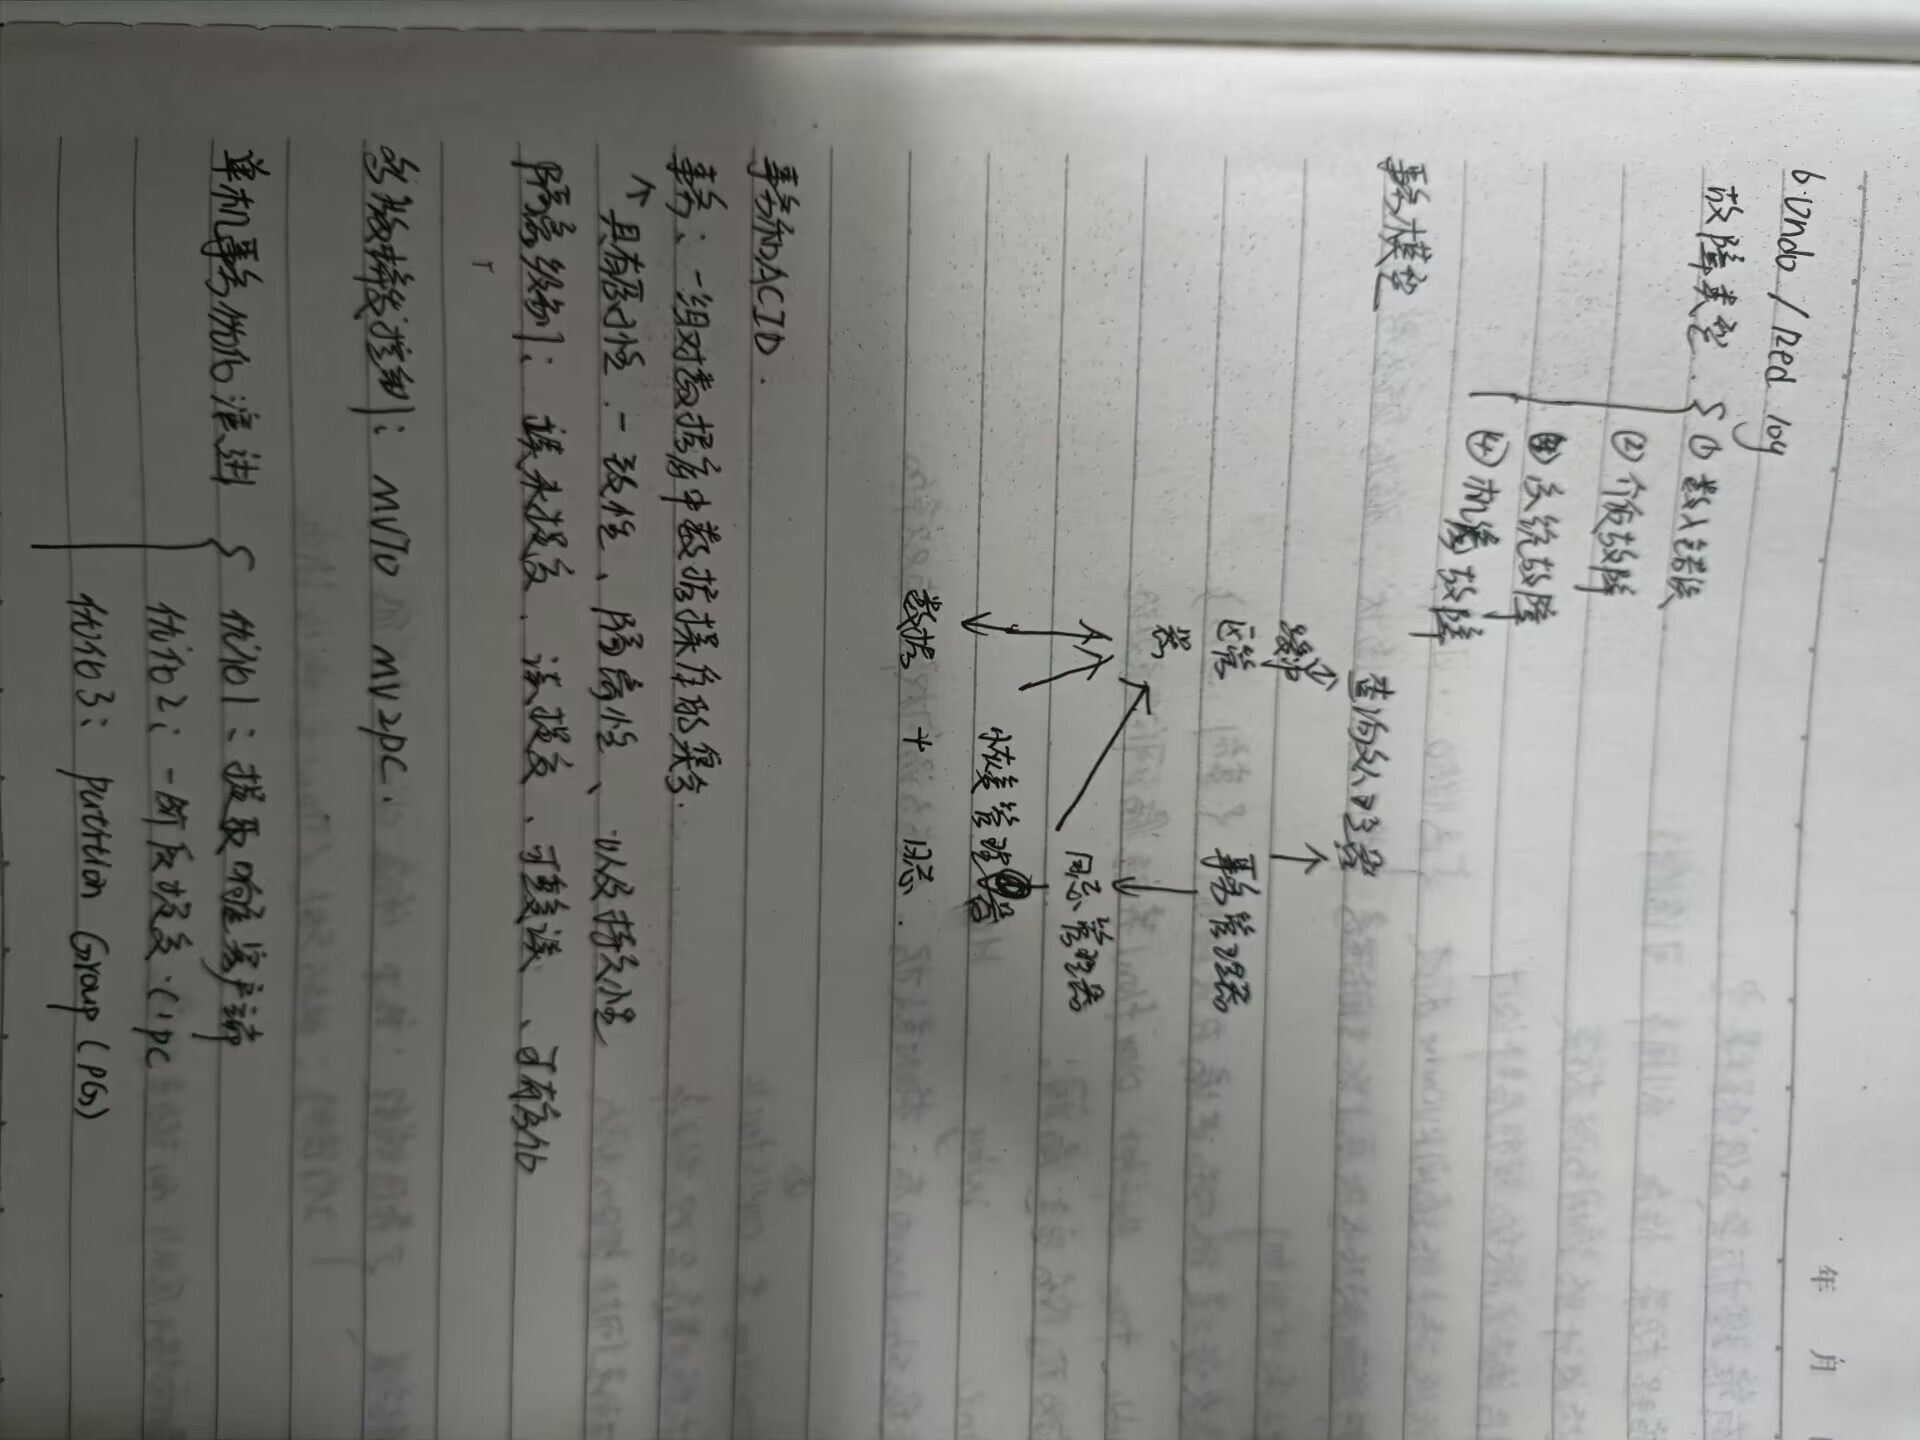 年 月
6. Undo / Red log
故障类型. { ① 数入错误
② 介质故障
③ 系统故障
④ 机房故障
事务模型
查询处理器
缓冲
区管
器
事务管理器
日志管理器
恢复管理器
数据 + 日志.
事务和ACID.
事务: 一组对数据库中数据操作的集合.
↑ 具有原子性. 一致性、隔离性、以及持久性
隔离级别: 读未提交. 读提交、可重复读、可有序化
多版本并发控制: MVTO 而 MV2PC.
单机事务优化演进 { 优化1: 提及响应客户端
优化2: 一阶段提交. (1pc
优化3: partition Group (PG)